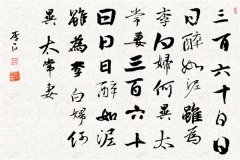 三百六十日日
日醉如泥雖為
李白婦何異太
常妻三百六十
日日日醉如泥
雖為李白婦何
異太常妻